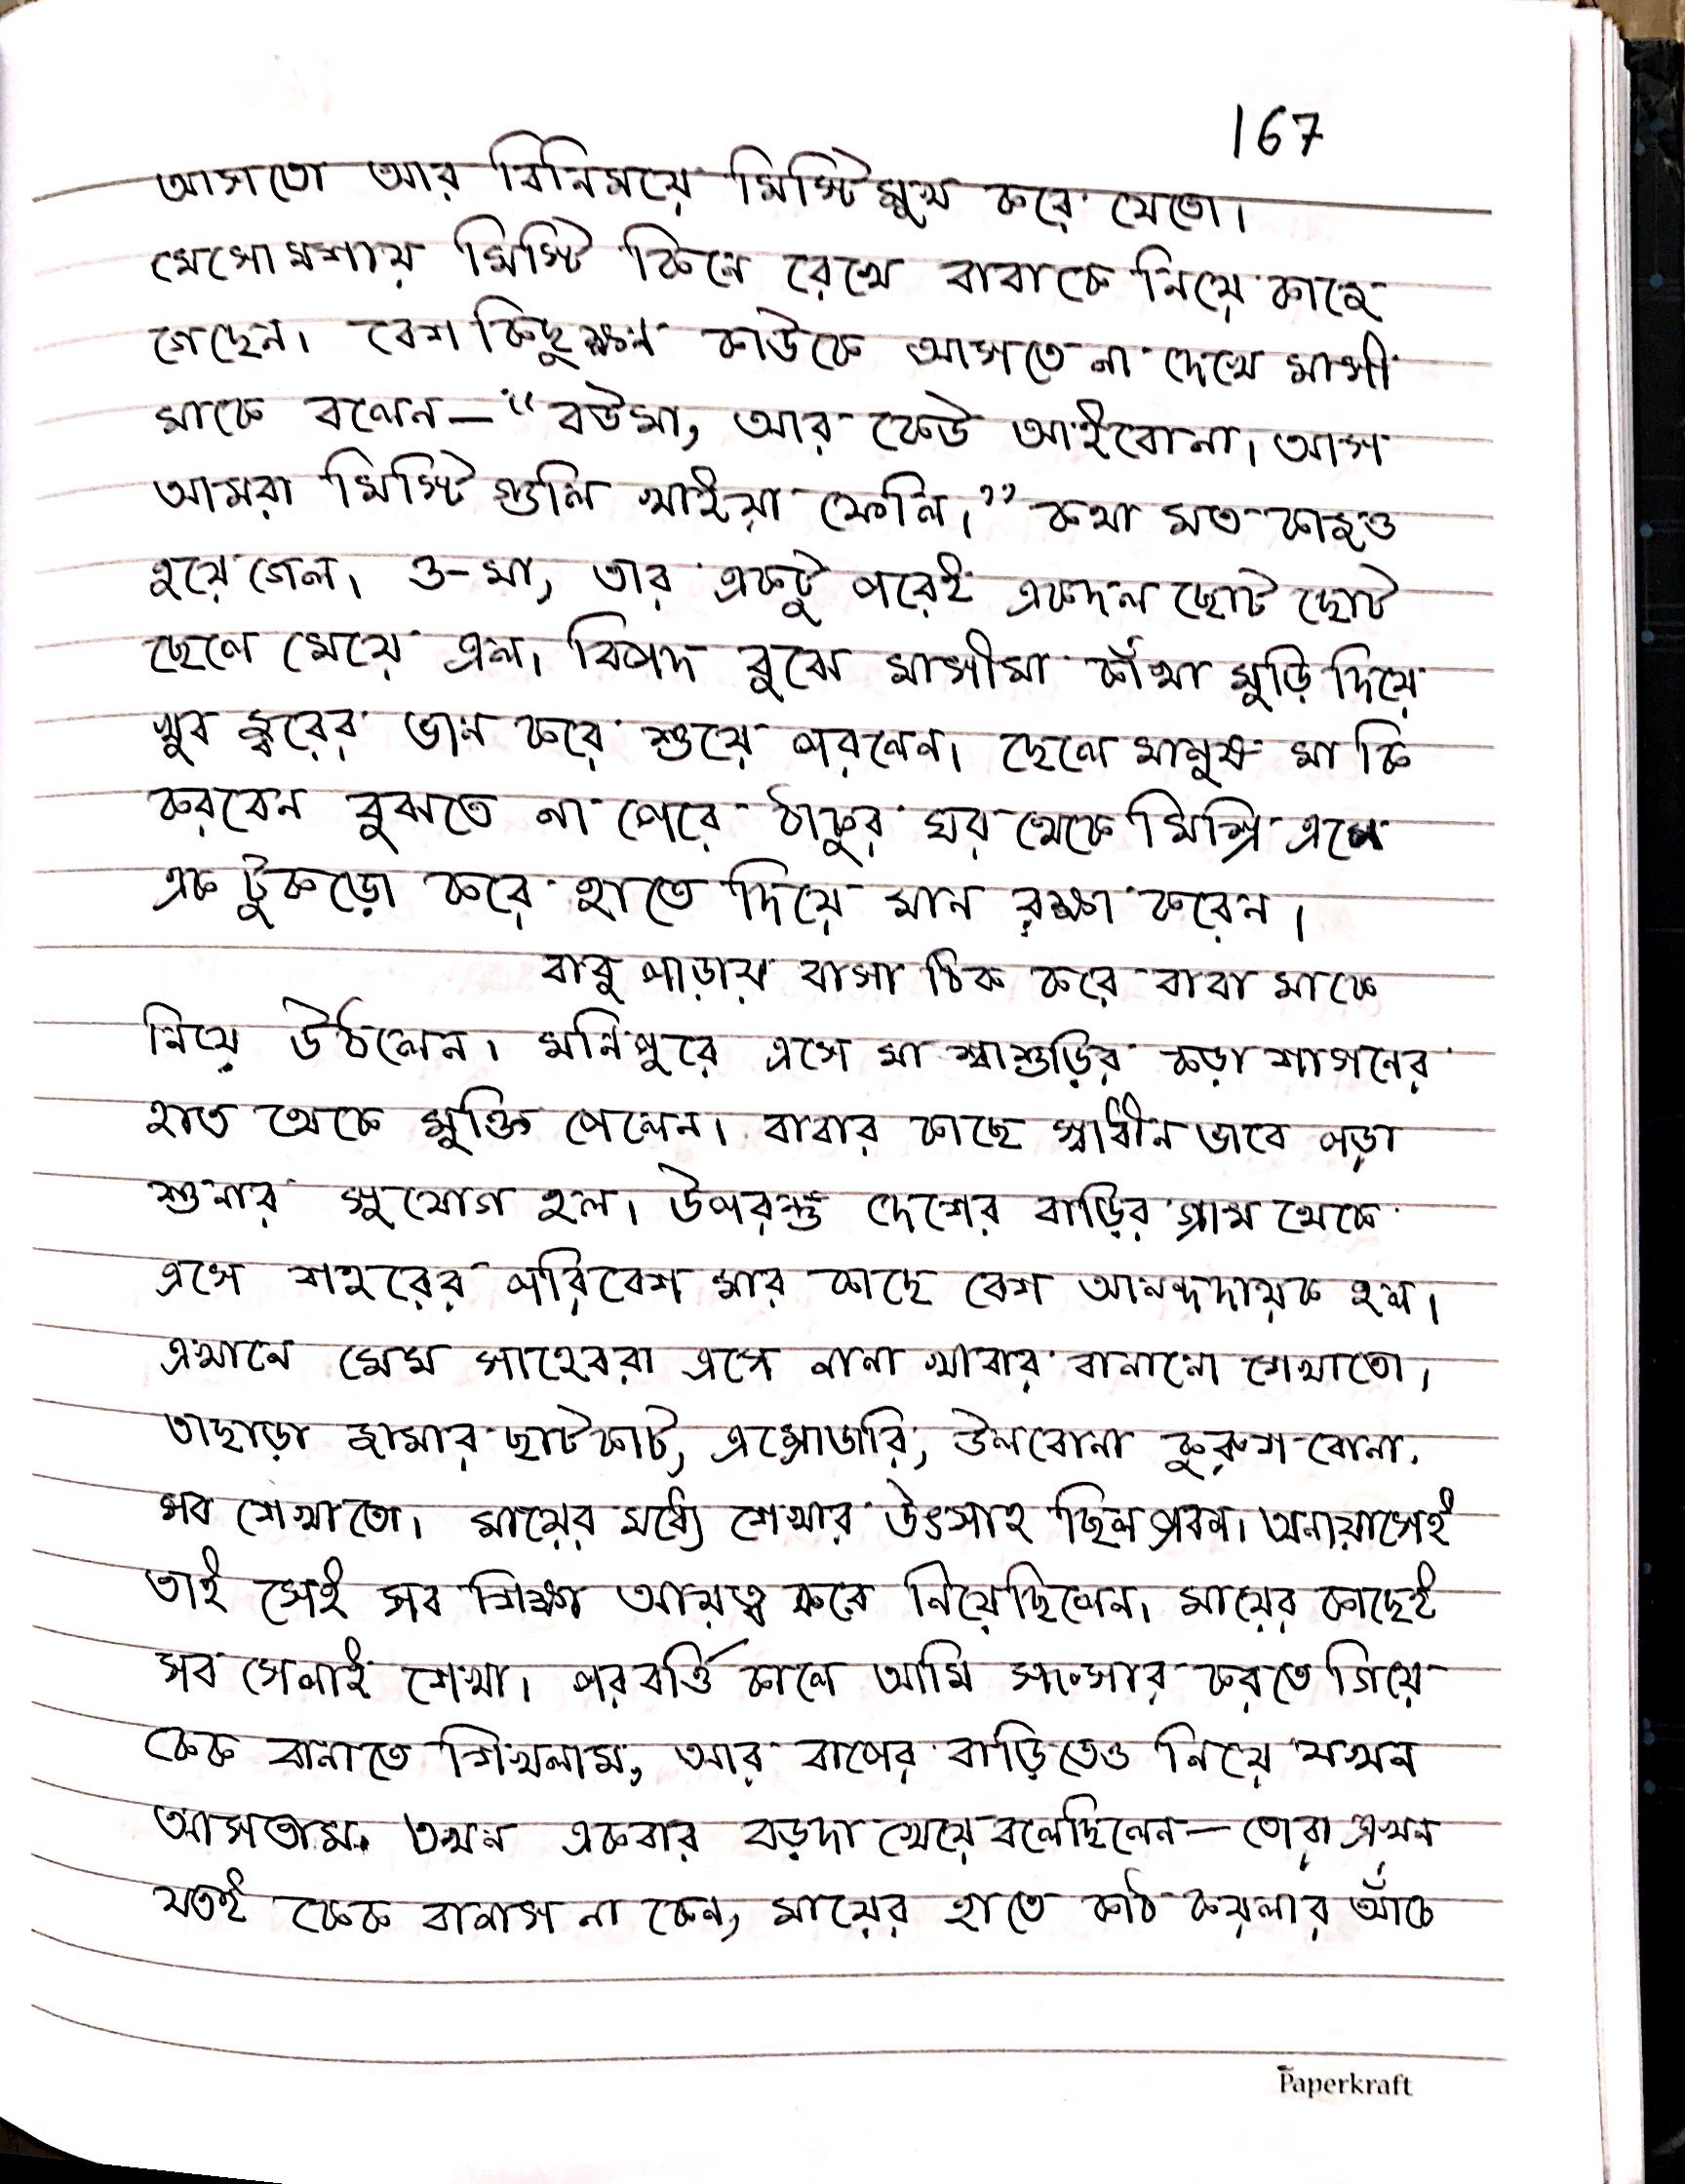 167
আসতো আর বিনিময়ে মিস্টিমুখ করে যেতো।
মেসোমশায় মিস্টি কিনে রেখে বাবাকে নিয়ে কাজে
গেছেন। বেশ কিছুক্ষন কাউকে আসতে না দেখে মাসী
মাকে বলেন—“বউমা, আর কেউ আইবোনা। আস
আমরা মিস্টি গুলি খাইয়া ফেলি।” কথা মত কাজও
হয়ে গেল। ও-মা, তার একটু পরেই একদল ছোট ছোট
ছেলে মেয়ে এল। বিপদ বুঝে মাসীমা কাঁথা মুড়ি দিয়ে
খুব জ্বরের ভান করে শুয়ে পরলেন। ছেলে মানুষ মা কি
করবেন বুঝতে না পেরে ঠাকুর ঘর থেকে মিস্রি এনে
এক টুকড়ো করে হাতে দিয়ে মান রক্ষা করেন।
বাবু পাড়ায় বাসা ঠিক করে বাবা মাকে
নিয়ে উঠলেন। মনিপুরে এসে মা শ্বাশুড়ির কড়া শাসনের
হাত থেকে মুক্তি পেলেন। বাবার কাছে স্বাধীন ভাবে পড়া
শুনার সুযোগ হল। উপরন্তু দেশের বাড়ির গ্রাম থেকে
এসে শহরের পরিবেশ মার কাছে বেশ আনন্দদায়ক হল।
এখানে মেম সাহেবরা এসে নানা খাবার বানানো শেখাতো,
তাছাড়া জামার ছাটকাট, এম্ব্রোডারি, উলবোনা কুরুশ-বোনা,
সব শেখাতো। মায়ের মধ্যে শেখার উৎসাহ ছিল প্রবল। অনায়াসেই
তাই সেই সব শিক্ষা আয়ত্ব করে নিয়েছিলেন। মায়ের কাছেই
সব সেলাই শেখা। পরবর্ত্তি কালে আমি সংসার করতে গিয়ে
কেক বানাতে শিখলাম, আর বাপের বাড়িতেও নিয়ে যখন
আসতাম, তখন একবার বড়দা খেয়ে বলেছিলেন— তোরা এখন
যতই কেক বানাস না কেন, মায়ের হাতে কাঠ কয়লার আঁচে
Paperkraft